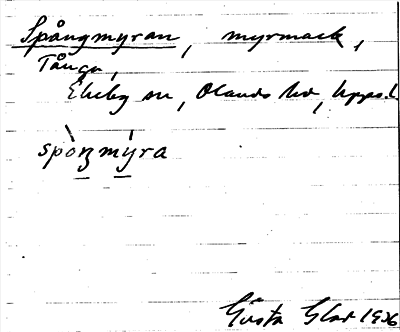 Spångmyran, myrmark,
Tånga,
Ekeby sn, Olands hd, Upps.l.
spòŋmýra
Gösta 1936